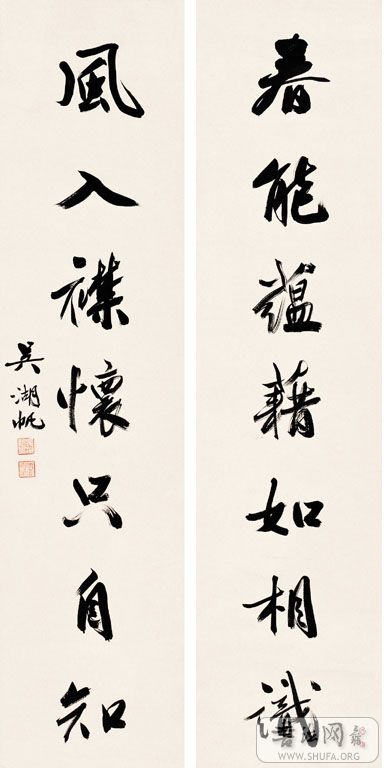 春能蕴藉如相識
風入襟懷只自知
吳湖帆
書法网
WWW.SHUFA.ORG